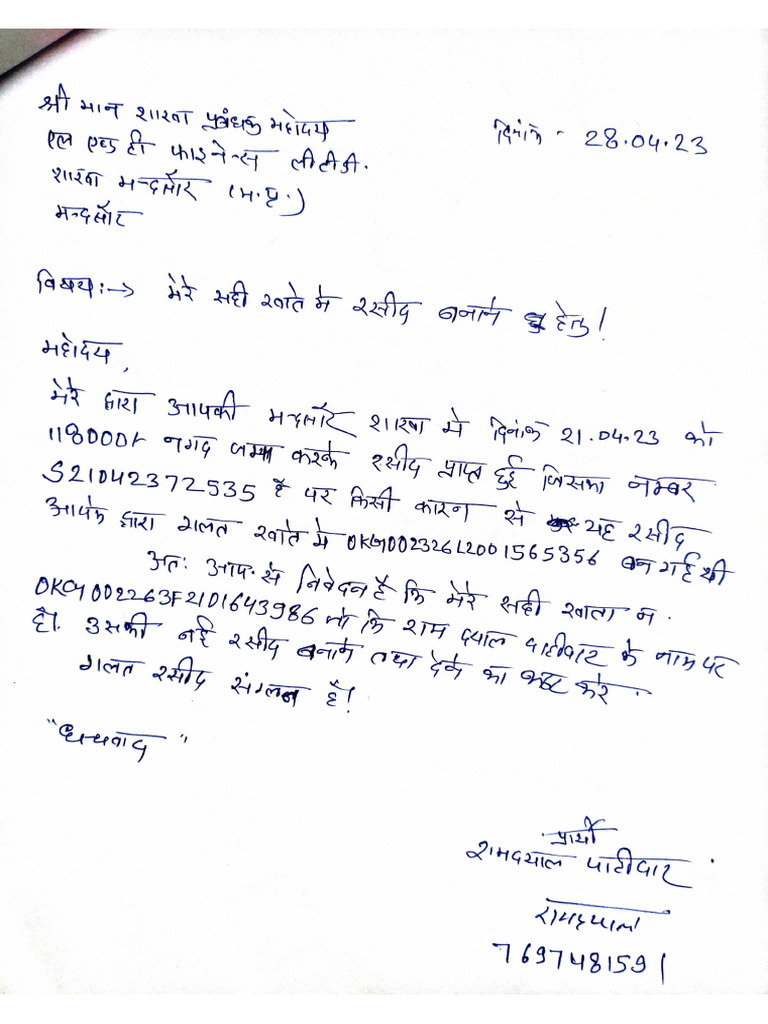 श्री मान शाखा प्रबंधक महोदय
दिनांक - 28.04.23
एल एण्ड टी फाइनेन्स लीटीडी.
शाखा मन्दसौर (म.प्र.)
मन्दसौर
विषय:-> मेरे सही खाते मे रसीद बनाने हेतु!
महोदय,
मेरे द्वारा आपकी मन्दसौर शाखा मे दिनांक 21.04.23 को
118000/- नगद जमा करके रसीद प्राप्त हुई जिसका नम्बर
S21042372535 है पर किसी कारन से यह रसीद
आपके द्वारा गलत खाते मे बन गई थी
अतः आप से निवेदन है कि मेरे सही खाता न.
OKG002263F2101643986 जो कि राम दयाल पाटीदार के नाम पर
है। उसकी नई रसीद बनाने तथा देने का कष्ट करे.
गलत रसीद संग्लन है!
"धन्यवाद"
प्रार्थी
रामदयाल पाटीदार
रामदयाल
7697481591